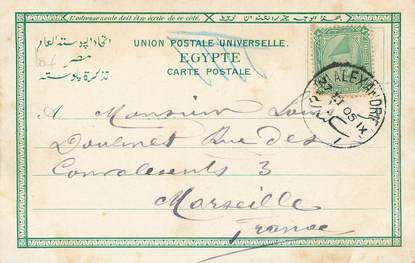 L'adresse seule doit être écrite de ce côté.
اتحاد البوستة العام
مصر
تذكرة بوستة
UNION POSTALE UNIVERSELLE.
EGYPTE
CARTE POSTALE
ALEXANDRIE
A Monsieur Louis
Rue des
Convalescents 3
Marseille
France